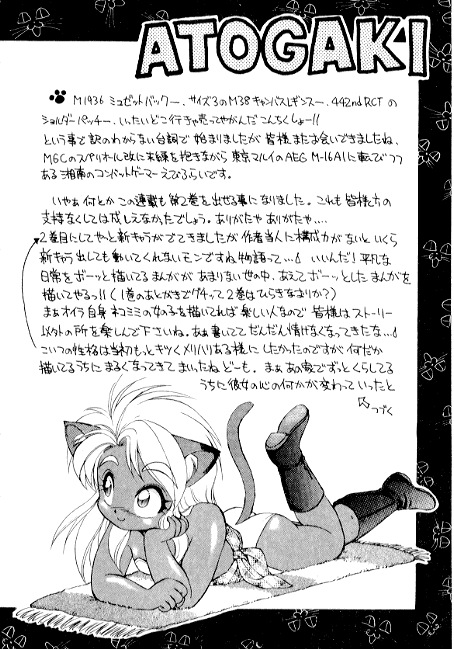 ATOGAKI
M1936 ミュゼットバックー、サイズ3のM38キャンバスレギンスー、442nd RCTの
ショルダーパッチー、いったいどこ行きゃ売ってやがんだこんちくしょー!!
という事で訳のわからない台詞で始まりましたが皆様またお会いできましたね、
MGCのスペリオール改に未練を抱きながら東京マルイのAEG M-16A1に転びつつ
ある湘南のコンバットゲーマーえびふらいです。
いやぁ何とかこの連載も第2巻を出せる事になりました。これも皆様方の
支持なくしては成しえなかたでしょう。ありがたや ありがたや‥‥
2巻目にしてやっと新キャラがでてきましたが作者当人に構成力がないといくら
新キャラ出しても動いてくれないモンですね物語って…♪ いいんだ!平凡な
日常をボーッと描いてるまんががあまりない世の中、あえてボーッとしたまんがを
描いてやるっ!! (1巻のあとがきでグチって2巻はひらきなおりか?)
まぁオイラ自身ネコミミの女の子を描いてれば楽しい人なので皆様はストーリー
以外の所を楽しんで下さいね。あぁ書いててだんだん情けなくなってきたな…♪
こいつの性格は当初もっとキツくメリハリある様にしたかったのですが何だか
描いてるうちにまるくなってきてまいったねどーも。まぁあの家でずっとくらしてる
うちに彼女の心の何かが変わっていったと
つづく